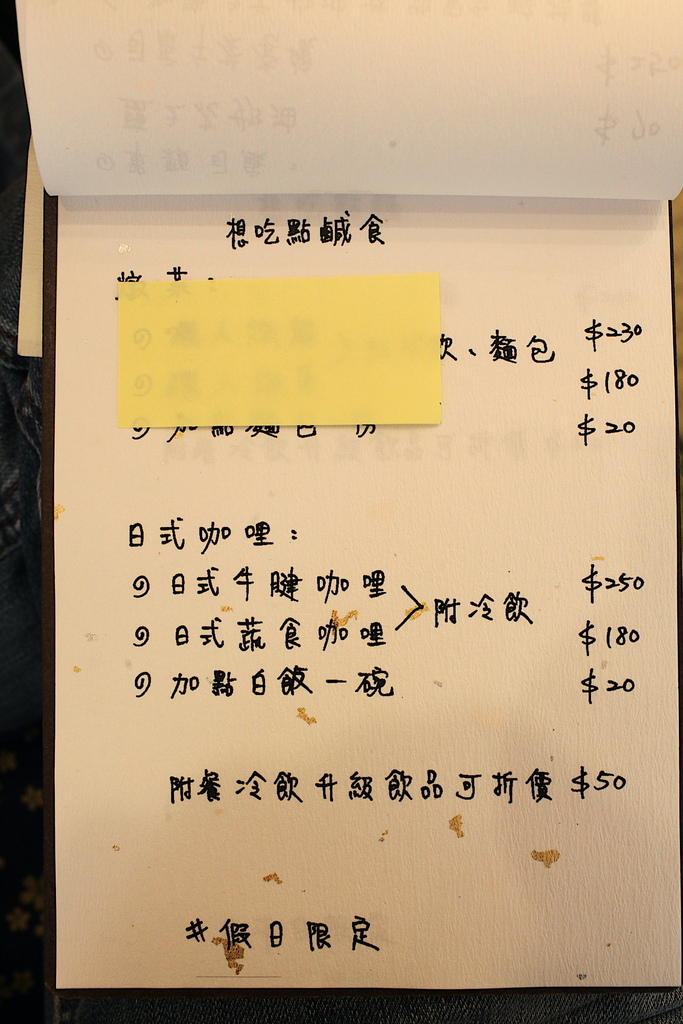 想吃點鹹食
飲、麵包 $230
$180
加點麵包 份 $20
日式咖哩：
日式牛腱咖哩 $250
附冷飲
日式蔬食咖哩 $180
加點白飯一碗 $20
附餐冷飲升級飲品可折價 $50
#假日限定